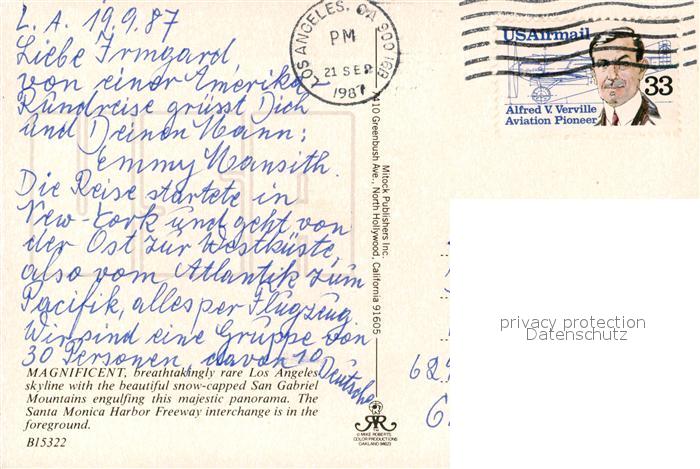 L.A. 19.9.87
Liebe Irmgard,
von einer Amerika
Rundreise grüsst Dich
und Deinen Mann:
Emmy
Die Reise startete in
New-York und geht von
der Ost zur Westküste,
also vom Atlantik zum
Pacifik, alles per Flugzeug.
Wir sind eine Gruppe von
30 Personen, davon 10
Deutsche
MAGNIFICENT, breathtakingly rare Los Angeles
skyline with the beautiful snow-capped San Gabriel
Mountains engulfing this majestic panorama. The
Santa Monica Harbor Freeway interchange is in the
foreground.
B15322
LOS ANGELES, CA 900
PM
21 SEP
1987
Mitock Publishers Inc.
7410 Greenbush Ave., North Hollywood, California 91605
RR
© MIKE ROBERTS
COLOR PRODUCTIONS
OAKLAND 94623
USAirmail
33
Alfred V. Verville
Aviation Pioneer
privacy protection
Datenschutz
68
6